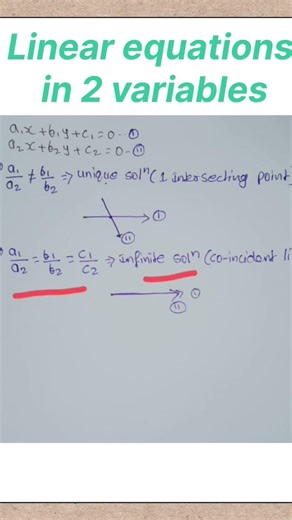 Linear equations
in 2 variables
a₁x+b₁y+c₁=0-①
a₂x+b₂y+c₂=0-⑪
a₁/a₂ ≠ b₁/b₂ ⇒ unique solⁿ (1 intersecting point)
①
⑪
a₁/a₂ = b₁/b₂ = c₁/c₂ ⇒ infinite solⁿ (co-incident li
①
⑪